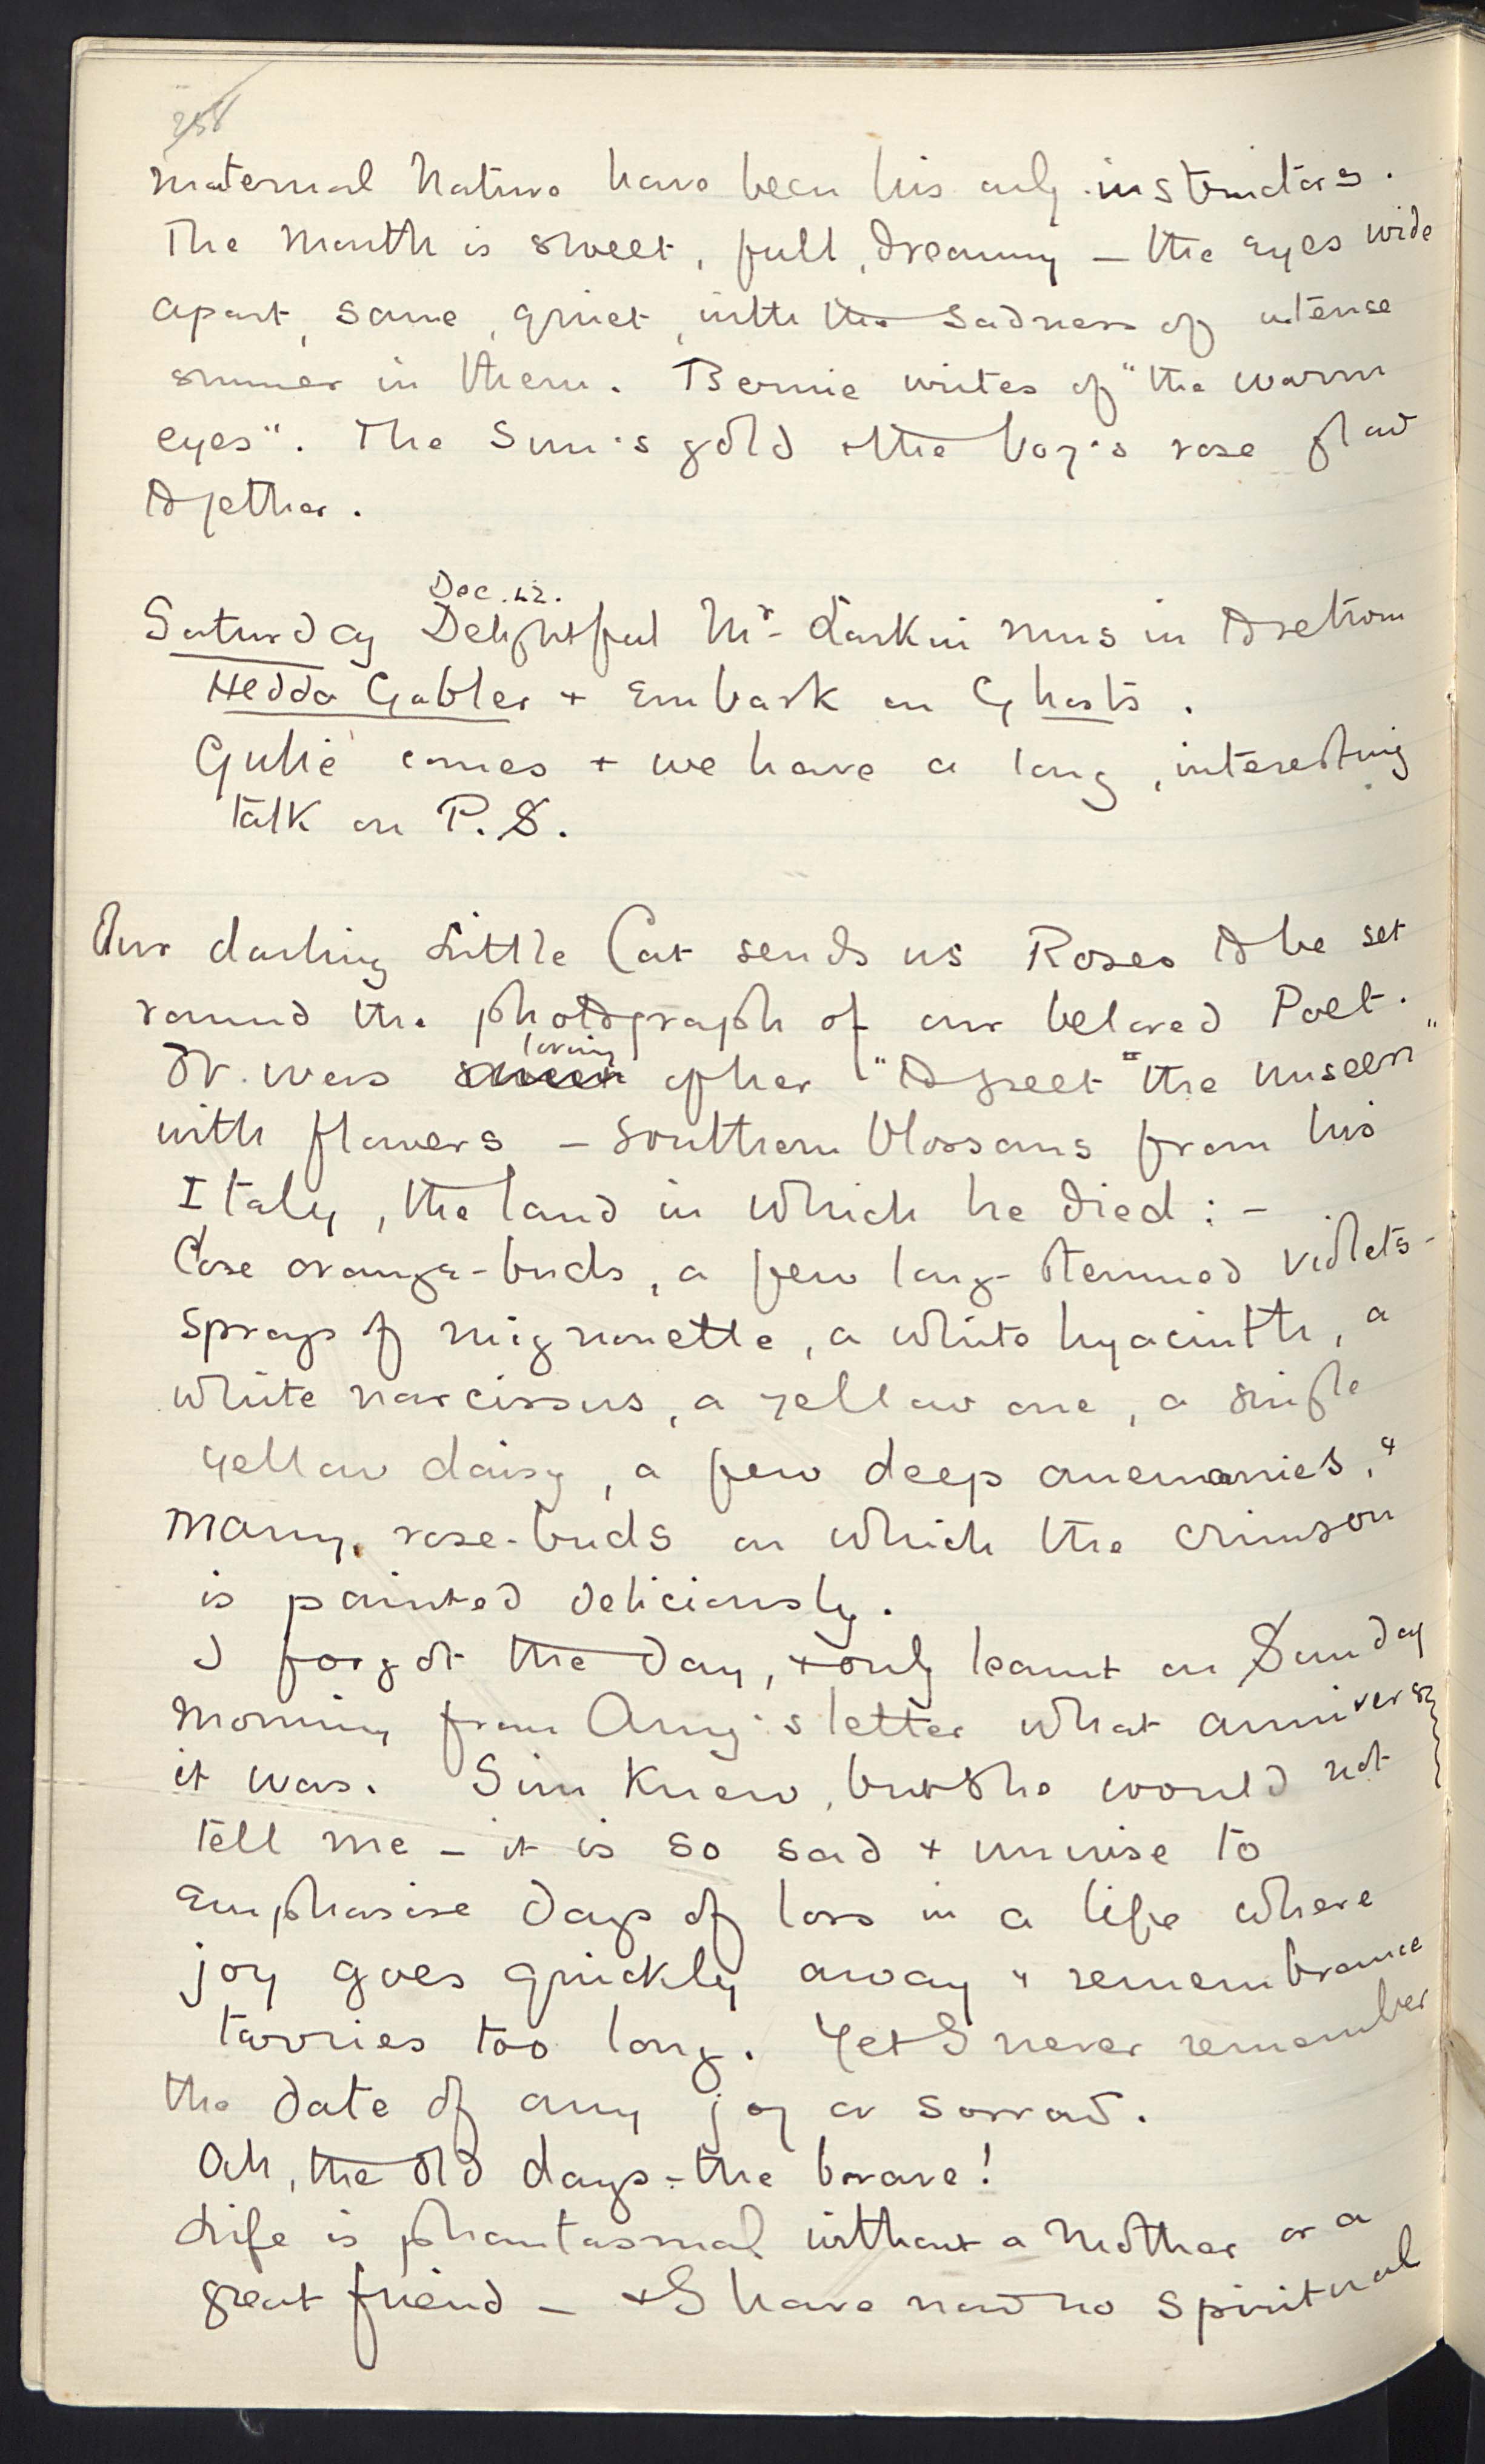 258
maternal Nature have been his only instructors.
The mouth is sweet, full, dreamy — the eyes wide
apart, sane, quiet, with the sadness of intense
summer in them. Bernie writes of "the warm
eyes". The Sun's gold & the boy's rose flow
together.
Dec. 22.
Saturday Delightful Mr. Larkin runs in to return
Hedda Gabler & embark on Ghosts.
Gulie comes & we have a long, interesting
talk on P.S.
Our darling Little Cat sends us Roses to be set
round the photograph of our beloved Poet.
loving
It was sweet of her "to greet "the unseen"
with flowers — Southern blossoms from his
Italy, the land in which he died: —
Close orange-buds, a few long-stemmed violets —
sprays of mignonette, a white hyacinth, a
white narcissus, a yellow one, a single
yellow daisy, a few deep anemonies, &
many rose-buds on which the crimson
is painted deliciously.
I forgot the day, & only learnt on Sunday
morning from Amy's letter what anniversary
it was. Sim knew, but she would not
tell me — it is so sad & unwise to
emphasise days of loss in a life where
joy goes quickly away & remembrance
tarries too long. Yet I never remember
the date of any joy or sorrow.
Oh, the old days — the brave!
Life is phantasmal without a Mother or a
great friend — & I have now no spiritual